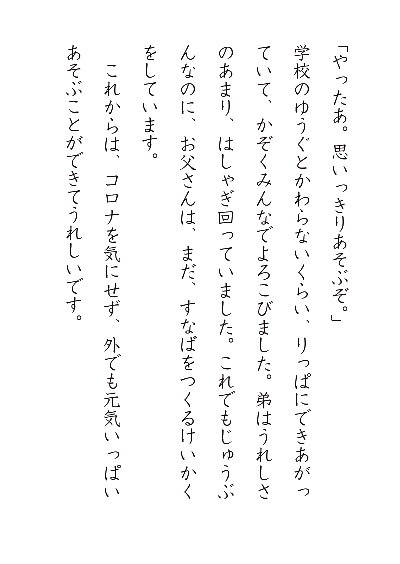 「やったあ。思いっきりあそぶぞ。」
学校のゆうぐとかわらないくらい、りっぱにできあがっ
ていて、かぞくみんなでよろこびました。弟はうれしさ
のあまり、はしゃぎ回っていました。これでもじゅうぶ
んなのに、お父さんは、まだ、すなばをつくるけいかく
をしています。
　これからは、コロナを気にせず、外でも元気いっぱい
あそぶことができてうれしいです。